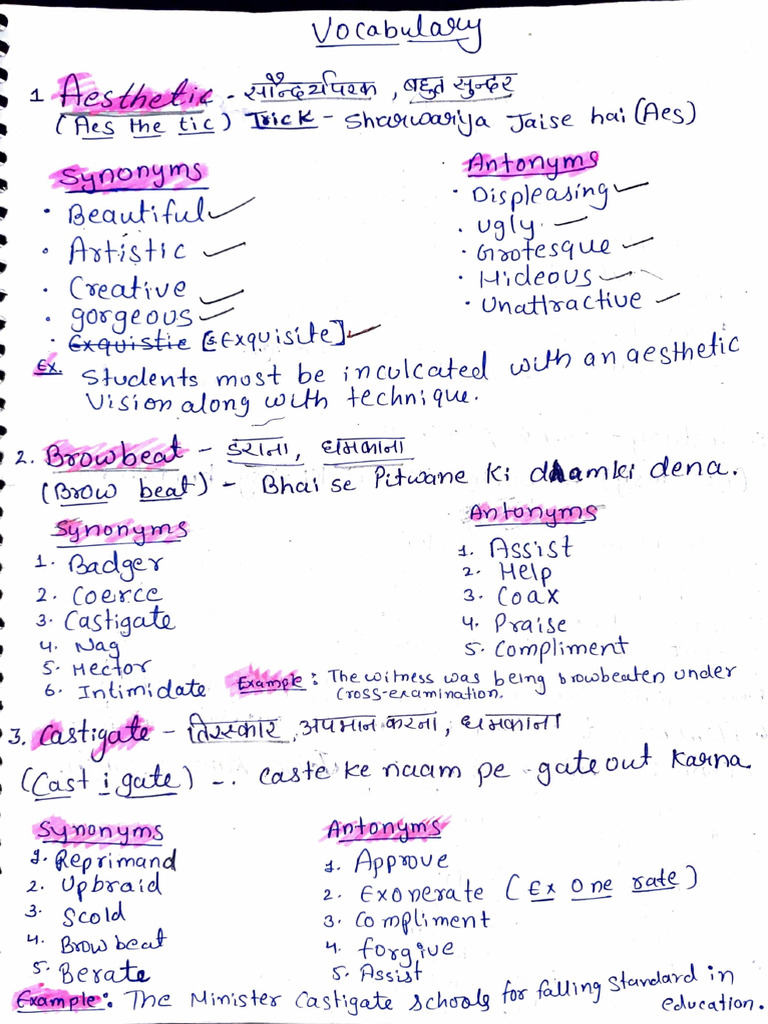 Vocabulary
1 Aesthetic - सौन्दर्यपरक, बहुत सुन्दर
(Aes the tic) Trick - Sharwariya Jaise hai (Aes)
Synonyms
• Beautiful
• Artistic
• Creative
• gorgeous
• Exquistie [Exquisite]
Antonyms
• Displeasing
• ugly.
• Grotesque
• Hideous
• Unattractive
Ex. Students must be inculcated with an aesthetic
Vision along with technique.
2. Browbeat - डराना, धमकाना
(Brow beat) - Bhai se Pitwane ki dhamki dena.
Synonyms
1. Badger
2. Coerce
3. Castigate
4. Nag
5. Hector
6. Intimidate
Antonyms
1. Assist
2. Help
3. Coax
4. Praise
5. Compliment
Example: The witness was being browbeaten under
Cross-examination.
3. Castigate - तिरस्कार, अपमान करना, धमकाना
(Cast i gate) - . Caste ke naam pe gate out Karna
Synonyms
1. Reprimand
2. Upbraid
3. Scold
4. Brow beat
5. Berate
Antonyms
1. Approve
2. Exonerate (Ex One rate)
3. Compliment
4. forgive
5. Assist
Example: The Minister Castigate schools for falling Standard in
education.